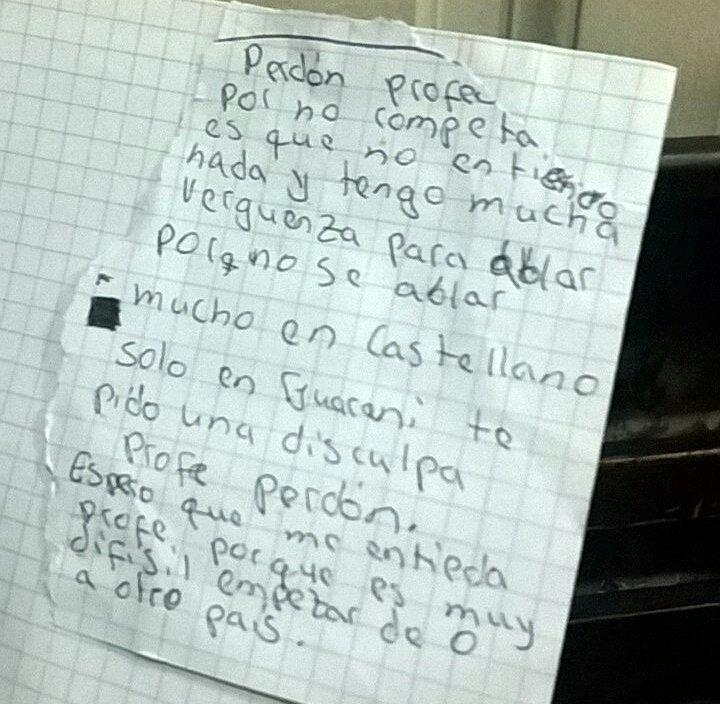 Perdón profe
por no competa
es que no entiendo
nada y tengo mucha
verguenza para ablar
porq no se ablar
mucho en Castellano
solo en Guarani te
pido una disculpa
profe perdón.
Espero que me entieda
profe porque es muy
difisil empezar de 0
a otro pais.